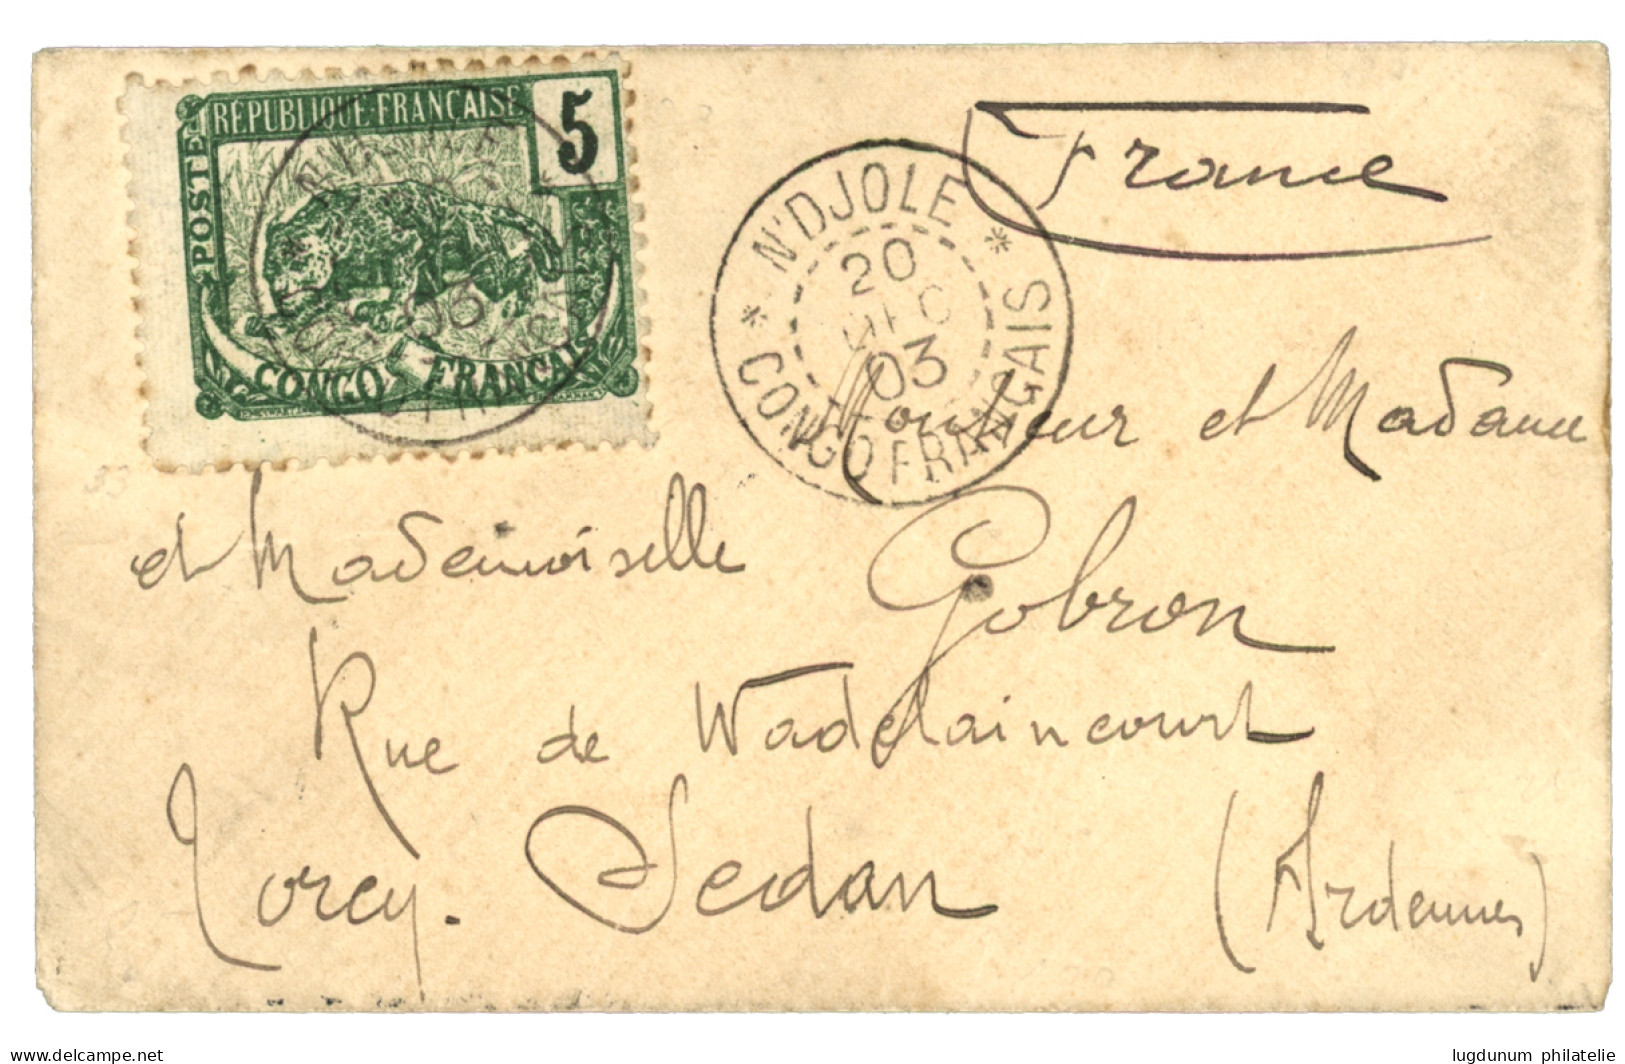 RÉPUBLIQUE FRANÇAISE
5
POSTES
CONGO FRANÇAIS
03
N'DJOLE
20
DEC
03
CONGO FRANÇAIS
France
Monsieur et Madame
et Mademoiselle Gobron
Rue de Wadelaincourt
Torcy. Sedan (Ardennes)
www.delcampe.net
lugdunum philatelie